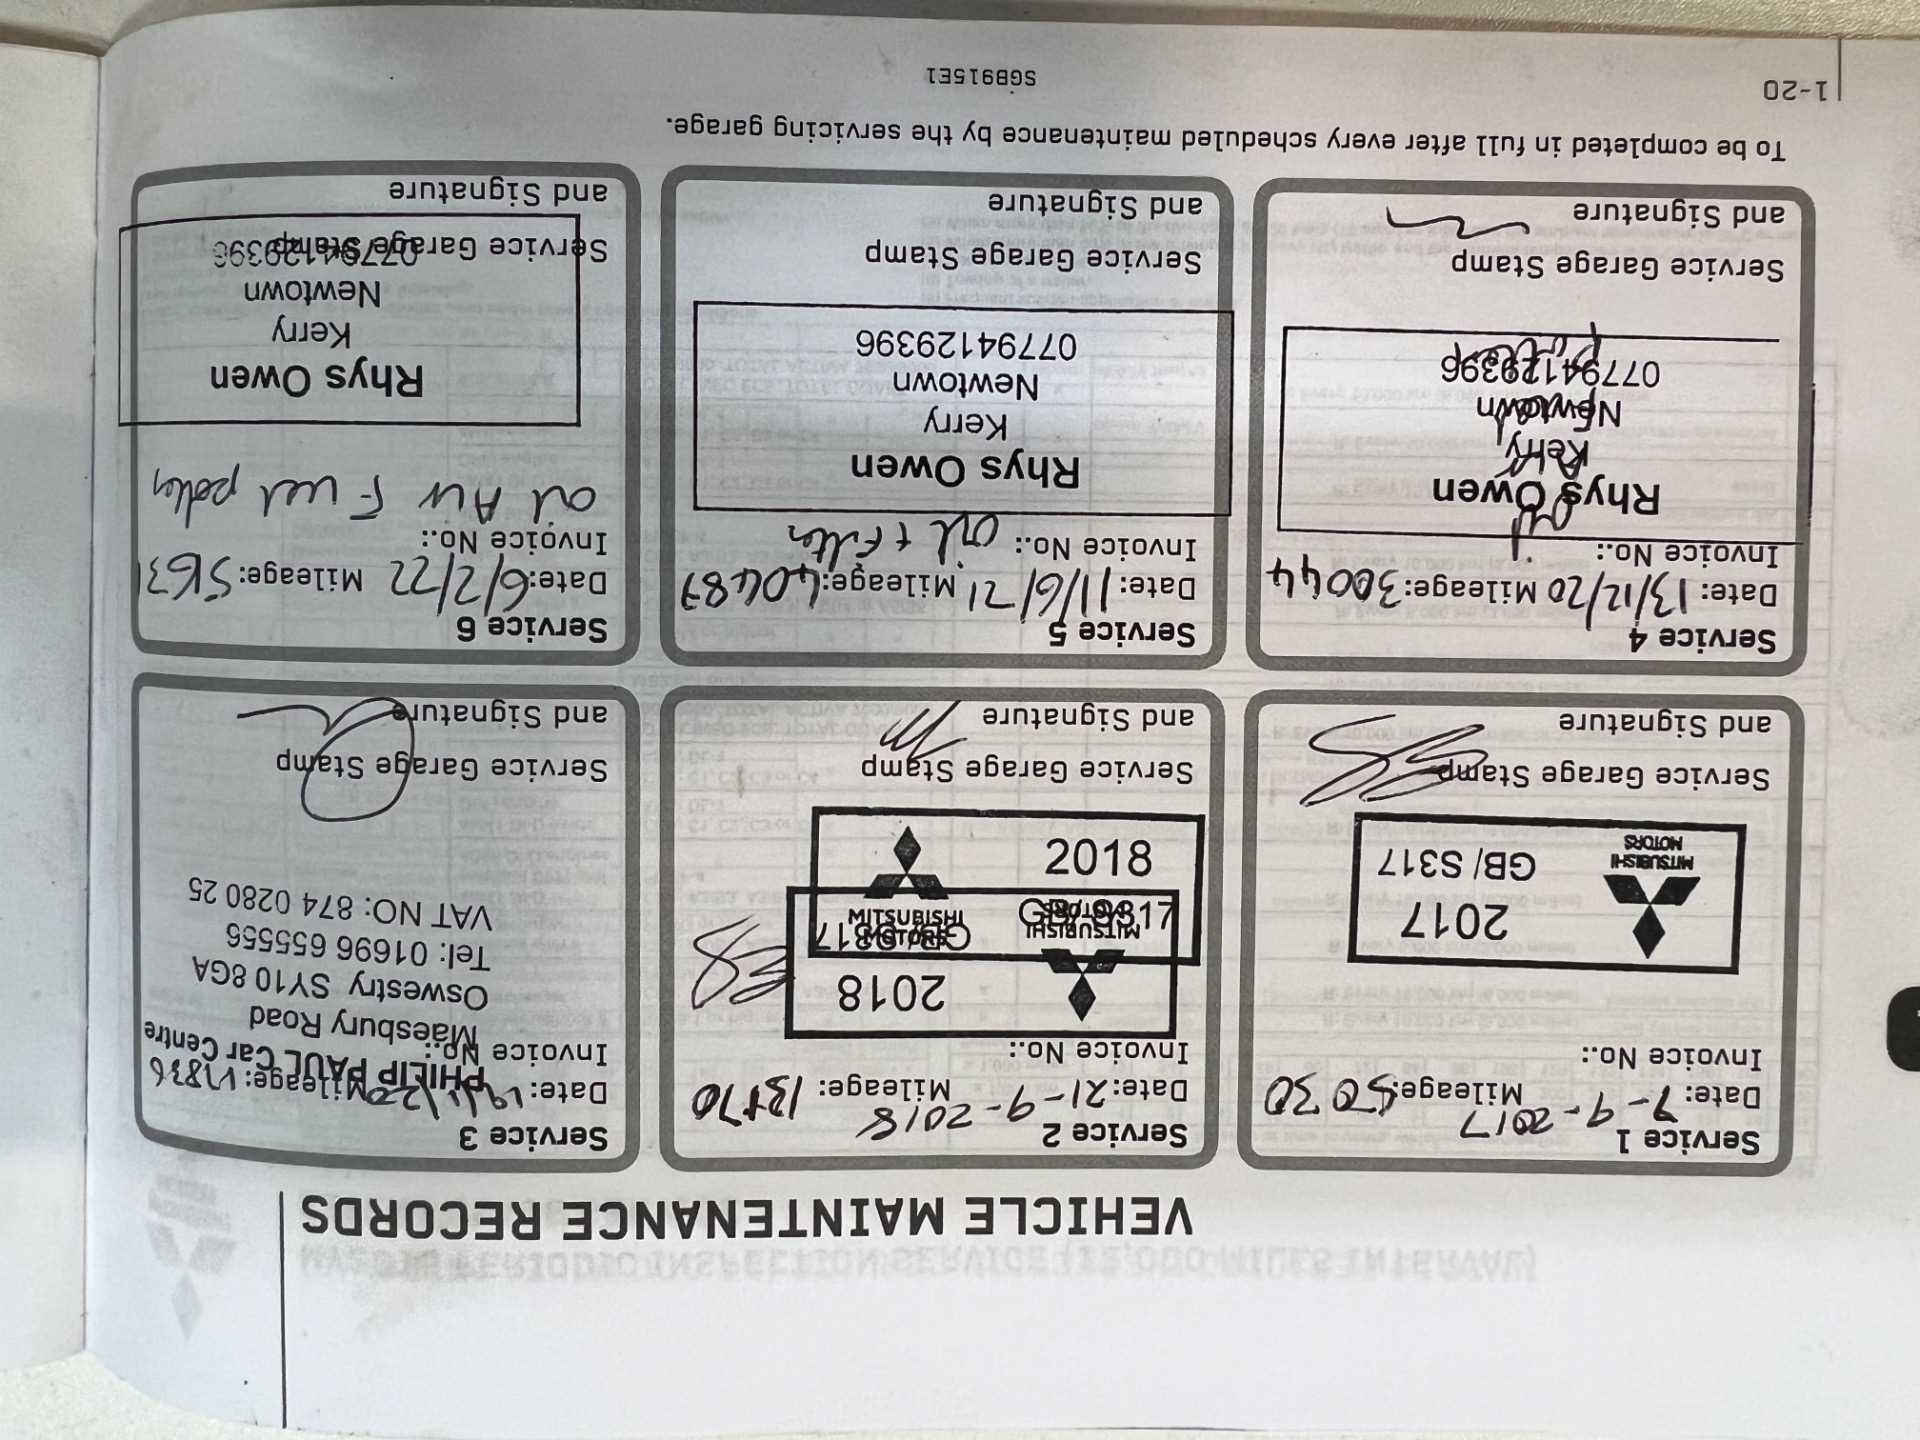 VEHICLE MAINTENANCE RECORDS
Service 1
Date: 7-9-2017 Mileage: 5030
Invoice No.:
2017
GB/ S317
MITSUBISHI
MOTORS
Service Garage Stamp
and Signature
Service 2
Date: 21-9-2018 Mileage:
Invoice No.:
2018
GB/ S317
MITSUBISHI
MOTORS
MITSUBISHI
MOTORS
GB/ S317
2018
Service Garage Stamp
and Signature
Service 3
Date: Mileage: 17836
Invoice No.:
PHILIP PAUL Car Centre
Maesbury Road
Oswestry SY10 8GA
Tel: 01696 655556
VAT NO: 874 0280 25
Service Garage Stamp
and Signature
Service 4
Date: 13/12/20 Mileage: 30044
Invoice No.:
Oil
Rhys Owen
Air
Kerry
Newtown
07794129396
Service Garage Stamp
and Signature
Service 5
Date: 11/6/21 Mileage: 40487
Invoice No.: Oil + Filter
Rhys Owen
Kerry
Newtown
07794129396
Service Garage Stamp
and Signature
Service 6
Date: 6/2/22 Mileage: 5163
Invoice No.:
oil Air Fuel pollen
Rhys Owen
Kerry
Newtown
07794129396
Service Garage Stamp
and Signature
To be completed in full after every scheduled maintenance by the servicing garage.
1-20
SGB915E1